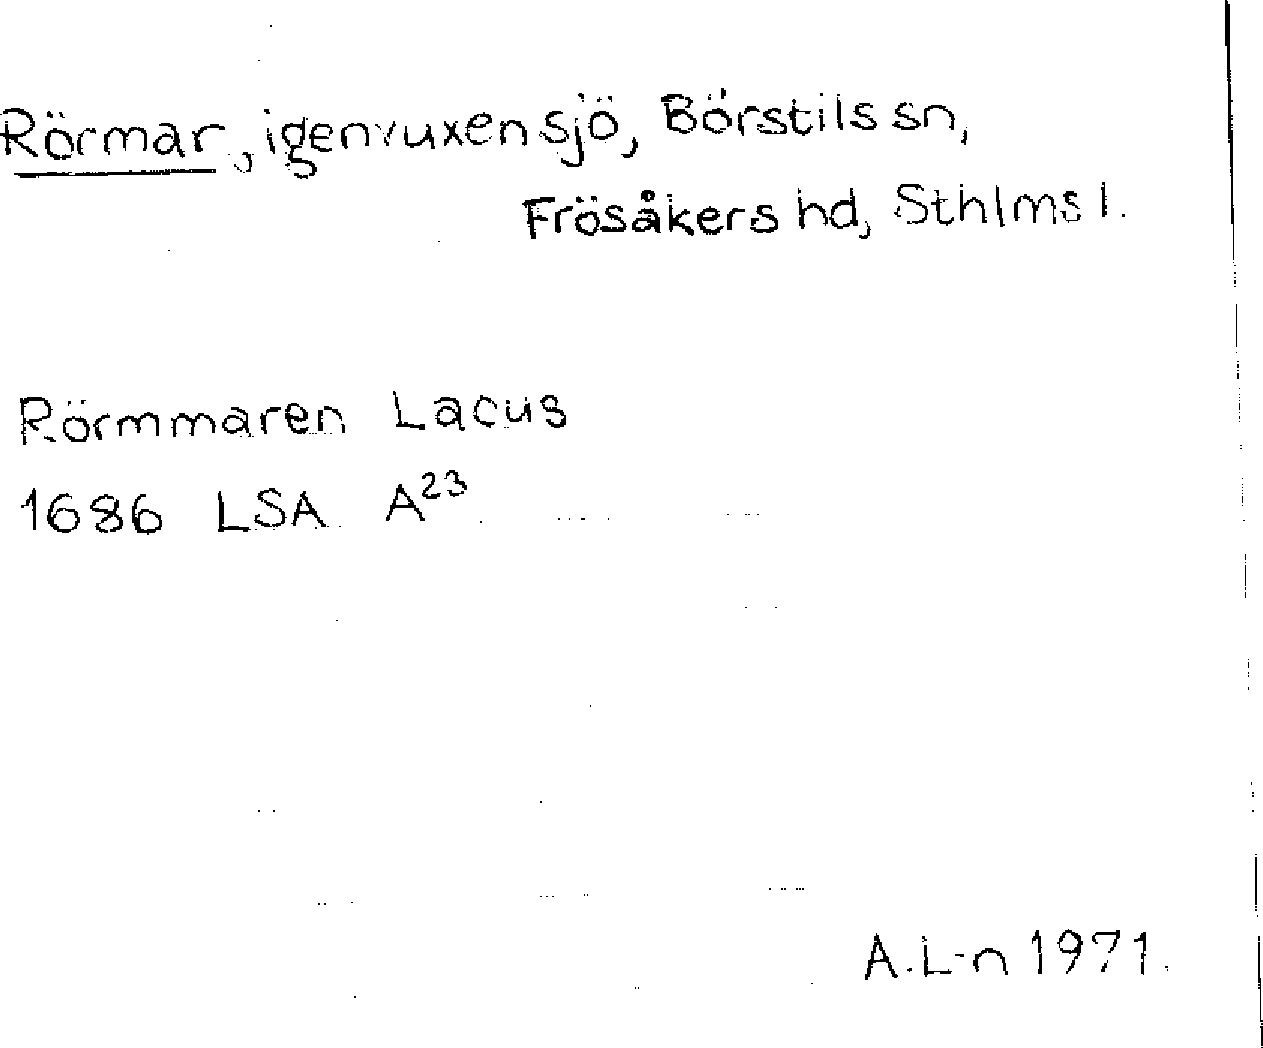 Rörmar, igenvuxen sjö, Börstils sn,
Frösåkers hd, Sthlms l.
Rörmmaren Lacus
1686 LSA A23
A.L-n 1971.